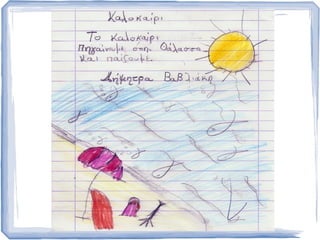 Καλοκαίρι
Το καλοκαίρι
Πηγαίνουμε στη Θάλασσα
και παίζουμε.
Δήμητρα Βαβλιάκη